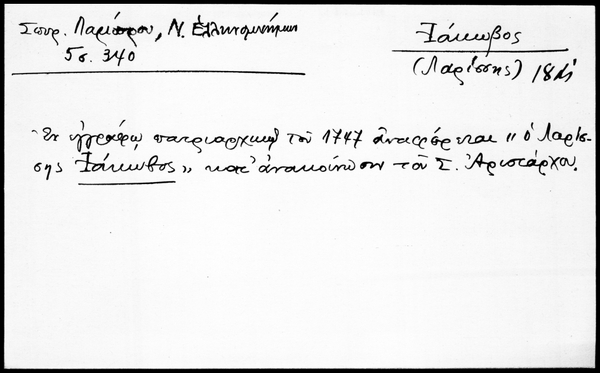 Σπυρ. Λαμπρου, Ν. Ἑλληνομνήμων
5 σ. 340
Ἰάκωβος
(Λαρίσσης) 18
Ἐν ἐγγράφῳ πατριαρχικῷ τοῦ 1747 ἀναφέρεται „ ὁ Λαρίσ-
σης Ἰάκωβος „ κατ' ἀνακοίνωσιν τοῦ Σ. Ἀριστάρχου.